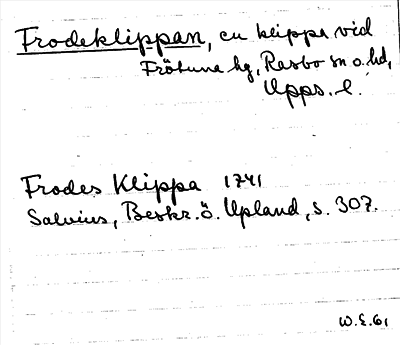 Frodeklippan, en klippa vid
Frötuna hg, Rasbo sn o. hd,
Upps. l.
Frodes Klippa 1741
Salvius, Beskr. ö. Upland, s. 307.
W.E.61